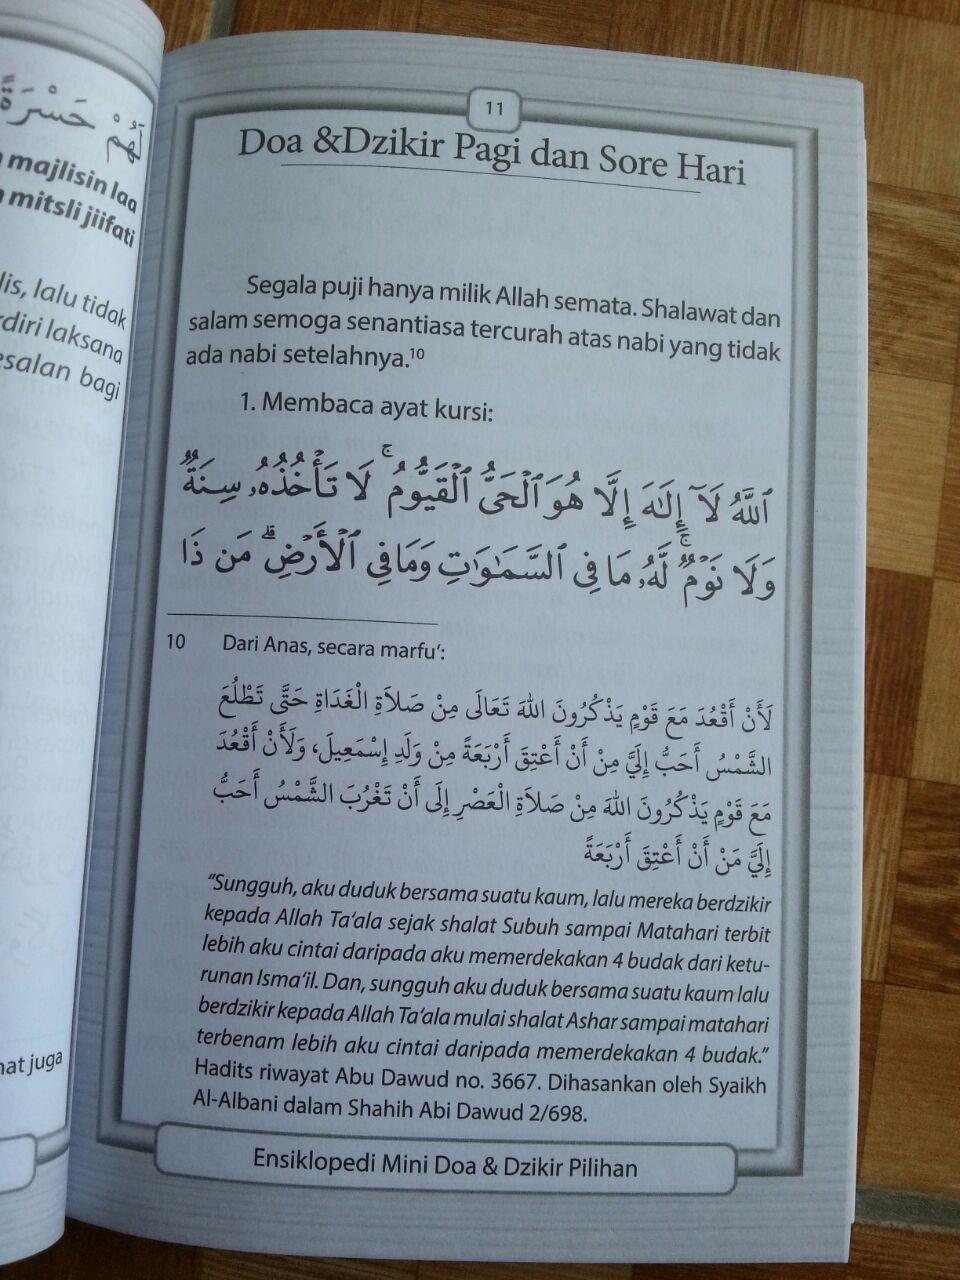 لَهُمْ حَسْرَةً
majlisin laa
mitsli jiifati
lis, lalu tidak
rdiri laksana
esalan bagi
nat juga
11
Doa &Dzikir Pagi dan Sore Hari
Segala puji hanya milik Allah semata. Shalawat dan
salam semoga senantiasa tercurah atas nabi yang tidak
ada nabi setelahnya.¹⁰
1. Membaca ayat kursi:
ٱللَّهُ لَآ إِلَٰهَ إِلَّا هُوَ ٱلْحَىُّ ٱلْقَيُّومُ ۚ لَا تَأْخُذُهُۥ سِنَةٌ
وَلَا نَوْمٌ ۚ لَّهُۥ مَا فِى ٱلسَّمَٰوَٰتِ وَمَا فِى ٱلْأَرْضِ ۗ مَن ذَا
10 Dari Anas, secara marfu‘:
لَأَنْ أَقْعُدَ مَعَ قَوْمٍ يَذْكُرُونَ اللهَ تَعَالَى مِنْ صَلَاةِ الْغَدَاةِ حَتَّى تَطْلُعَ
الشَّمْسُ أَحَبُّ إِلَيَّ مِنْ أَنْ أَعْتِقَ أَرْبَعَةً مِنْ وَلَدِ إِسْمَعِيلَ، وَلَأَنْ أَقْعُدَ
مَعَ قَوْمٍ يَذْكُرُونَ اللهَ مِنْ صَلَاةِ الْعَصْرِ إِلَى أَنْ تَغْرُبَ الشَّمْسُ أَحَبُّ
إِلَيَّ مَنْ أَنْ أَعْتِقَ أَرْبَعَةً
“Sungguh, aku duduk bersama suatu kaum, lalu mereka berdzikir
kepada Allah Ta‘ala sejak shalat Subuh sampai Matahari terbit
lebih aku cintai daripada aku memerdekakan 4 budak dari ketu-
runan Isma‘il. Dan, sungguh aku duduk bersama suatu kaum lalu
berdzikir kepada Allah Ta‘ala mulai shalat Ashar sampai matahari
terbenam lebih aku cintai daripada memerdekakan 4 budak.”
Hadits riwayat Abu Dawud no. 3667. Dihasankan oleh Syaikh
Al-Albani dalam Shahih Abi Dawud 2/698.
Ensiklopedi Mini Doa & Dzikir Pilihan